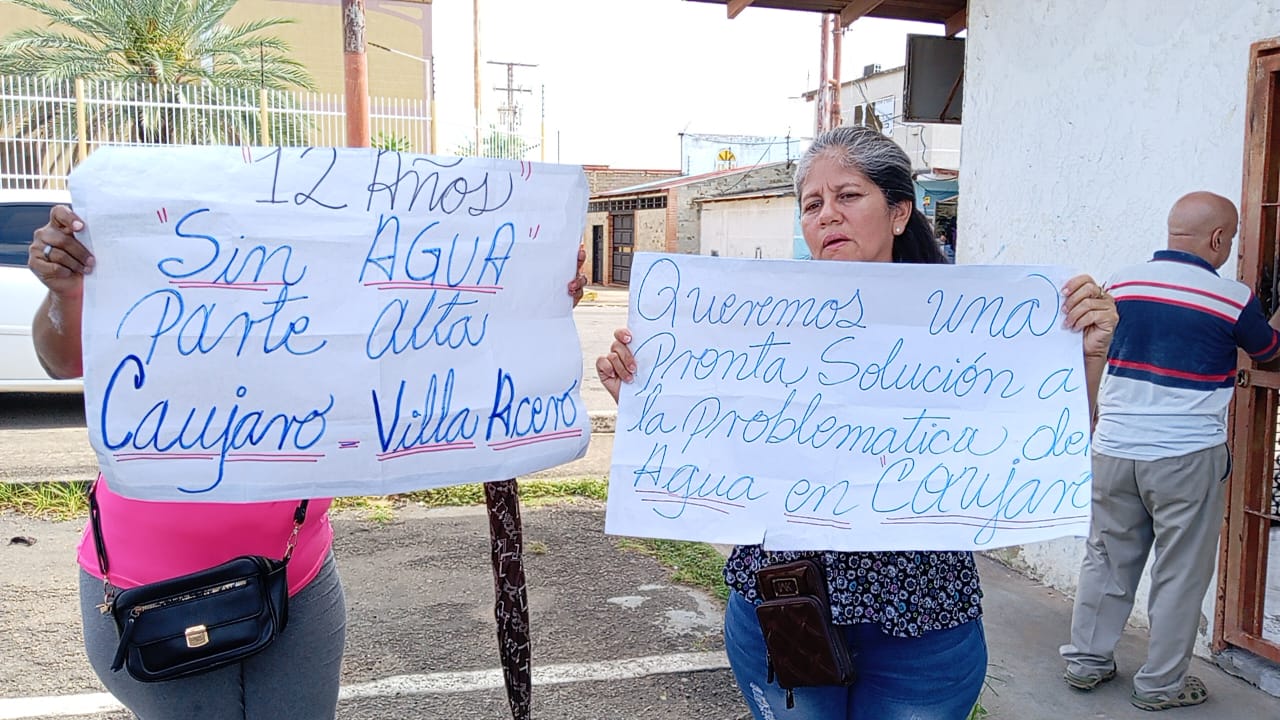 "12 Años"
"Sin AGUA"
Parte alta
Caujaro - Villa Acero
Queremos una
Pronta Solución a
la problematica del
Agua en "Caujaro